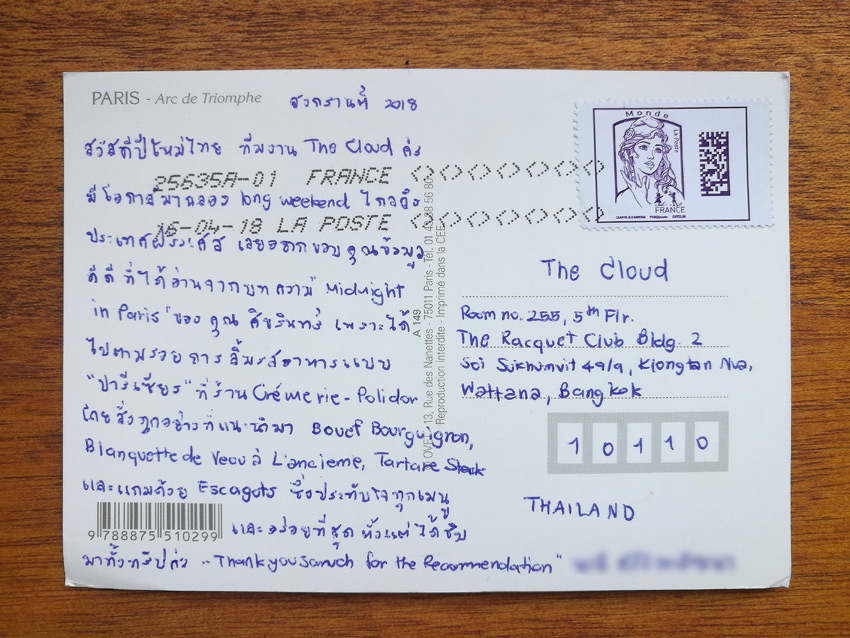 PARIS - Arc de Triomphe
สงกรานต์ 2018
สวัสดีปีใหม่ไทย ทีมงาน The Cloud ค่ะ
25635A-01 FRANCE
มีโอกาสมาฉลอง long weekend ไกลถึง
16-04-18 LA POSTE
ประเทศฝรั่งเศส เลยอยากขอบคุณข้อมูล
ดีดี ที่ได้อ่านจากบทความ "Midnight
in Paris" ของ คุณ ศิขรินทร์ เพราะได้
ไปตามรอย การลิ้มรสอาหารแบบ
"ปารีเซียง" ที่ร้าน Crémerie-Polidor
โดยสั่งทุกอย่างที่แนะนำมา Bouef Bourguignon,
Blanquette de Veau à L'ancieme, Tartare Steak
และแถมด้วย Escagots ซึ่งประทับใจทุกเมนู
และอร่อยที่สุด ตั้งแต่ได้ชิม
มาทั้งทริปค่ะ "Thank you so much for the Recommendation"
9 788875 510299
13, Rue des Nanettes - 75011 Paris - Tél. 01 43 38 56 80
Reproduction interdite - Imprimé dans la CEE
A 149
Monde
La Poste
FRANCE
The Cloud
Room no. 255, 5th Flr.
The Racquet Club Bldg. 2
Soi Sukhumvit 49/9, Klongtan Nua,
Wattana, Bangkok
10110
THAILAND